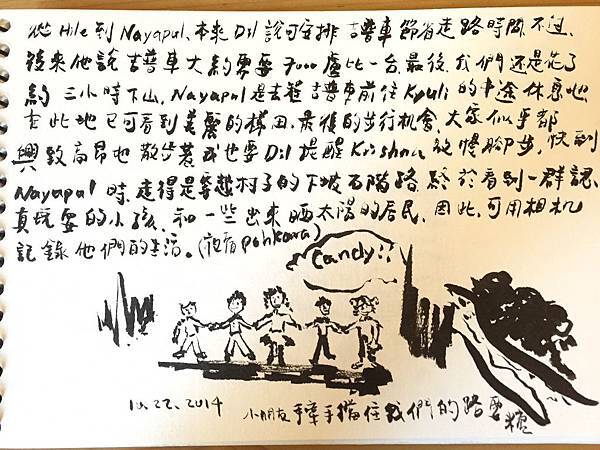 從 Hile 到 Nayapul,本來 Dil 說可安排吉普車節省走路時間,不過,
後來他說吉普車大約需要 7000 盧比一台,最後,我們還是花了
約三小時下山,Nayapul 是去程吉普車前往 Kyuli 的中途休息地
在此地已可看到美麗的梯田,最後的步行機會,大家似乎都
興致高昂地散步著,我也要 Dil 提醒 Krishna 放慢腳步,快到
Nayapul 時,走得是穿越村子的下坡石階路,終於看到一群認
真玩耍的小孩,和一些出來晒太陽的居民,因此,可用相机
記錄他們的生活。(夜宿 Pohkara)
Candy!!
10.22.2014 小朋友手牽手擋住我們的路要糖